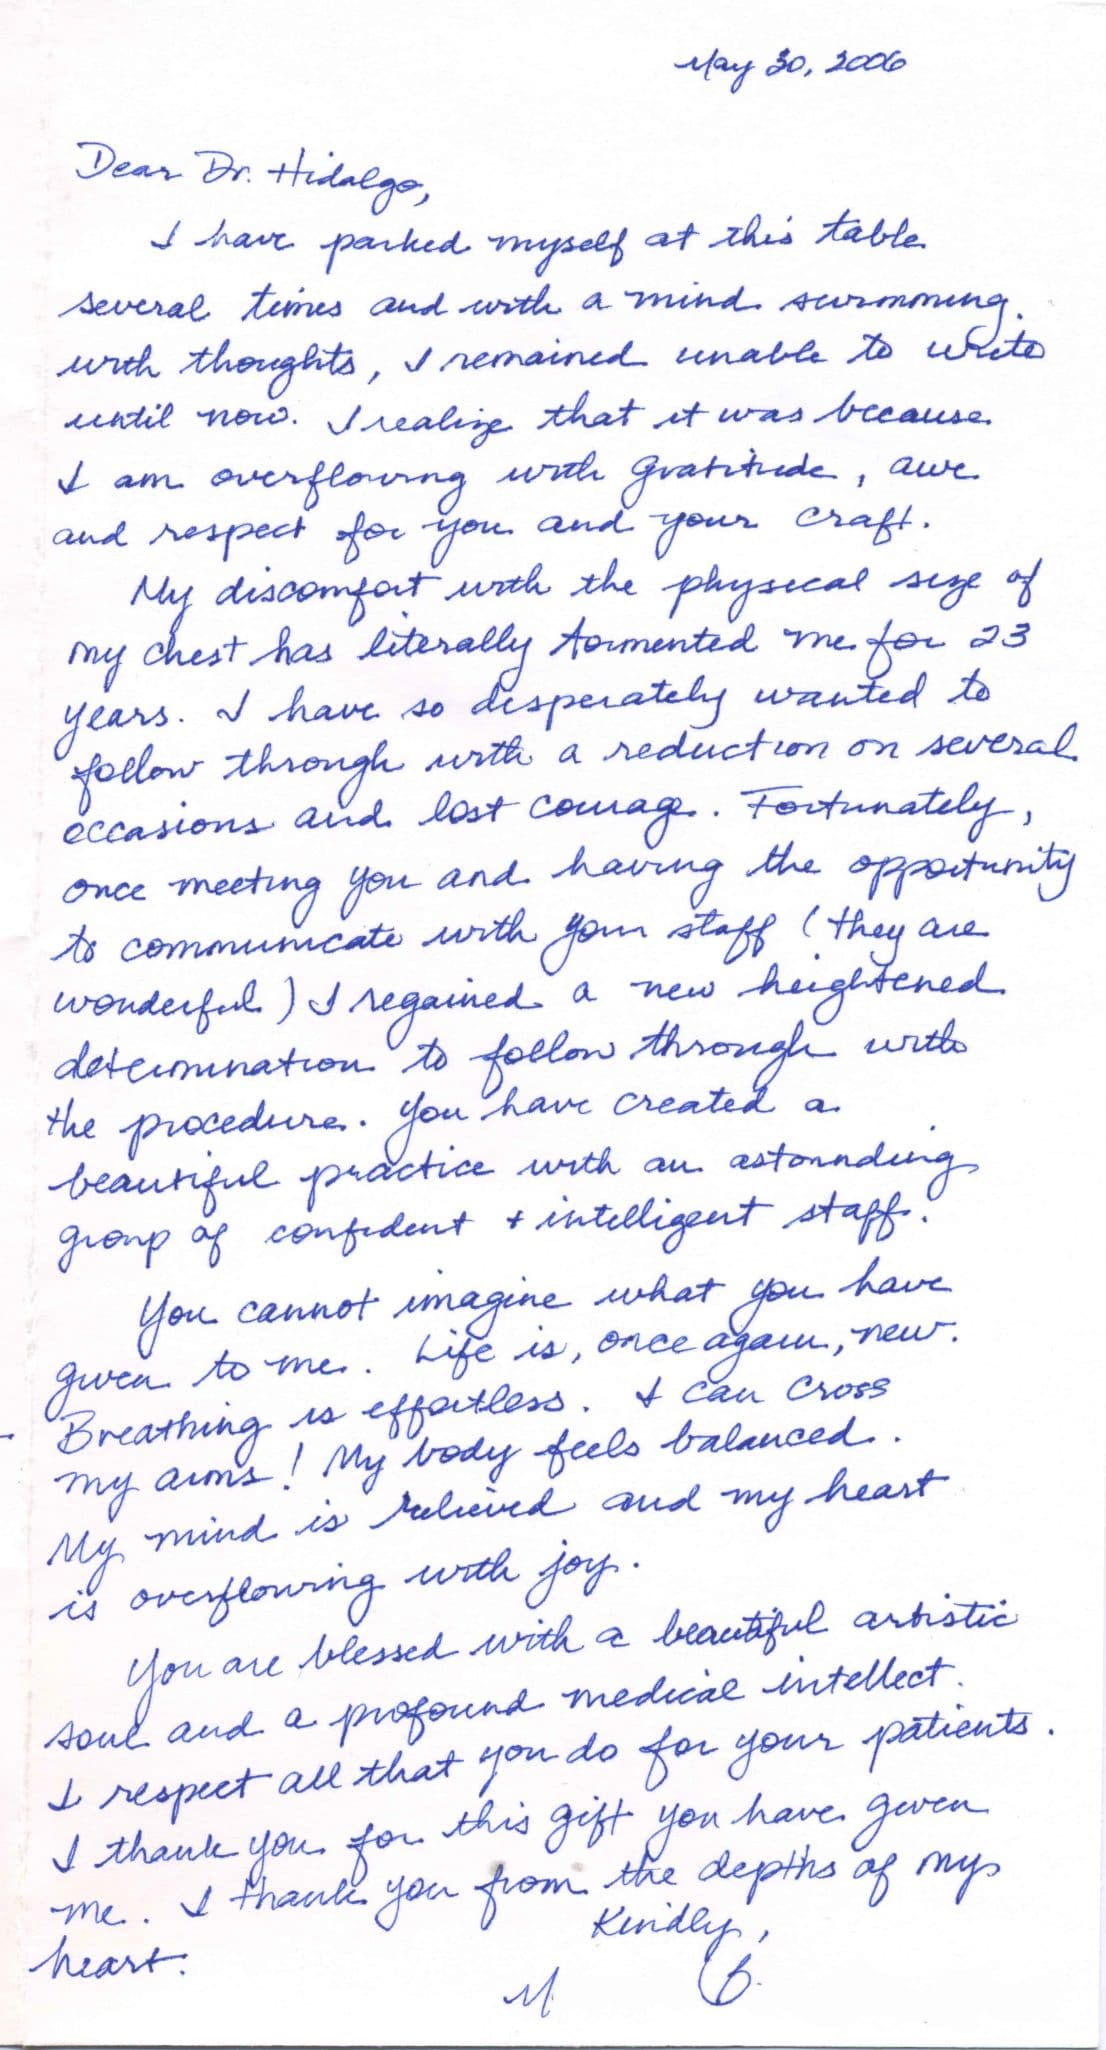 May 30, 2006
Dear Dr. Hidalgo,
I have parked myself at this table
several times and with a mind swimming
with thoughts, I remained unable to write
until now. I realize that it was because
I am overflowing with gratitude, awe
and respect for you and your craft.
My discomfort with the physical size of
my chest has literally tormented me for 23
years. I have so desperately wanted to
follow through with a reduction on several
occasions and lost courage. Fortunately,
once meeting you and having the opportunity
to communicate with your staff (they are
wonderful) I regained a new heightened
determination to follow through with
the procedure. You have created a
beautiful practice with an astounding
group of confident + intelligent staff.
You cannot imagine what you have
given to me. Life is, once again, new.
Breathing is effortless. I can cross
my arms! My body feels balanced.
My mind is relieved and my heart
is overflowing with joy.
You are blessed with a beautiful artistic
soul and a profound medical intellect.
I respect all that you do for your patients.
I thank you for this gift you have given
me. I thank you from the depths of my
heart.
Kindly,
M. B.